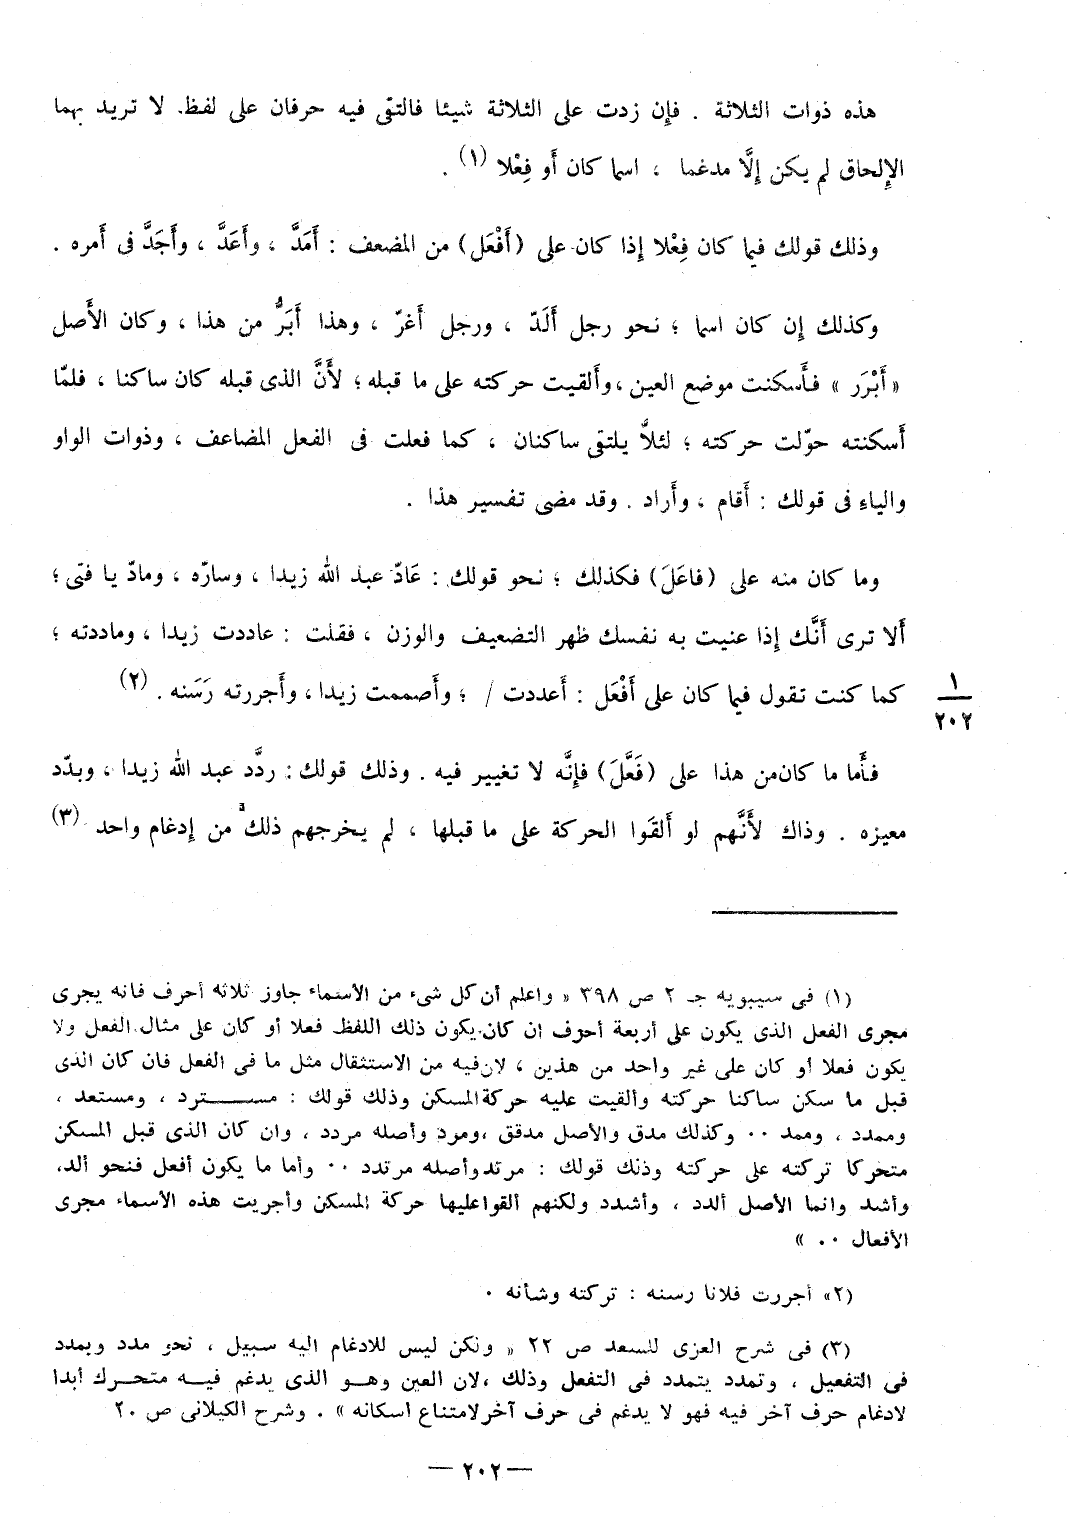 هذه ذوات الثلاثة . فإِن زدت على الثلاثة شيئا فالتقى فيه حرفان على لفظ. لا تريد بهما
الإِلحاق لم يكن إِلَّا مدغما ، اسما كان أَو فِعْلا (١) .
وذلك قولك فيما كان فِعْلا إِذا كان على (أَفْعَل) من المضعف : أَمَدَّ ، وأَعَدَّ ، وأَجَدَّ فى أَمره .
وكذلك إِن كان اسما ؛ نحو رجل أَلَدّ ، ورجل أَغرّ ، وهذا أَبَرُّ من هذا ، وكان الأَصل
« أَبْرَر » فأَسكنت موضع العين ، وأَلقيت حركته على ما قبله ؛ لأَنَّ الذى قبله كان ساكنا ، فلمّا
أَسكنته حوّلت حركته ؛ لئلاَّ يلتقى ساكنان ، كما فعلت فى الفعل المضاعف ، وذوات الواو
والياءِ فى قولك : أَقام ، وأَراد . وقد مضى تفسير هذا .
وما كان منه على (فاعَلَ) فكذلك ؛ نحو قولك : عَادّ عبد الله زيدا ، وسارّه ، ومادّ يا فتى ؛
أَلا ترى أَنَّك إِذا عنيت به نفسك ظهر التضعيف والوزن ، فقلت : عاددت زيدا ، وماددته ؛
كما كنت تقول فيما كان على أَفْعَل : أَعددت / ؛ وأَصممت زيدا ، وأَجررته رَسَنه . (٢)
١
٢٠٢
فأَما ما كان من هذا على (فَعَّلَ) فإِنَّه لا تغيير فيه . وذلك قولك : ردَّد عبد الله زيدا ، وبدّد
معيزه . وذاك لأَنَّهم لو أَلقَوا الحركة على ما قبلها ، لم يخرجهم ذلك من إِدغام واحد (٣)
(١) فى سيبويه جـ ٢ ص ٣٩٨ « واعلم أن كل شىء من الأسماء جاوز ثلاثة أحرف فانه يجرى
مجرى الفعل الذى يكون على أربعة أحرف ان كان يكون ذلك اللفظ فعلا أو كان على مثال الفعل ولا
يكون فعلا أو كان على غير واحد من هذين ، لان فيه من الاستثقال مثل ما فى الفعل فان كان الذى
قبل ما سكن ساكنا حركته وألقيت عليه حركة المسكن وذلك قولك : مسترد ، ومستعد ،
وممدد ، وممد ٠٠ وكذلك مدق والأصل مدقق ، ومرد وأصله مردد ، وان كان الذى قبل المسكن
متحركا تركته على حركته وذلك قولك : مرتد وأصله مرتدد ٠٠ وأما ما يكون أفعل فنحو ألد،
وأشد وانما الأصل ألدد ، وأشدد ولكنهم ألقوا عليها حركة المسكن وأجريت هذه الأسماء مجرى
الأفعال ٠٠ »
(٢» أجررت فلانا رسنه : تركته وشأنه ٠
(٣) فى شرح العزى للسعد ص ٢٢ « ولكن ليس للادغام اليه سبيل ، نحو مدد ويمدد
فى التفعيل ، وتمدد يتمدد فى التفعل وذلك ، لان العين وهو الذى يدغم فيه متحرك أبدا
لادغام حرف آخر فيه فهو لا يدغم فى حرف آخر لامتناع اسكانه » . وشرح الكيلانى ص ٢٠
— ٢٠٢ —